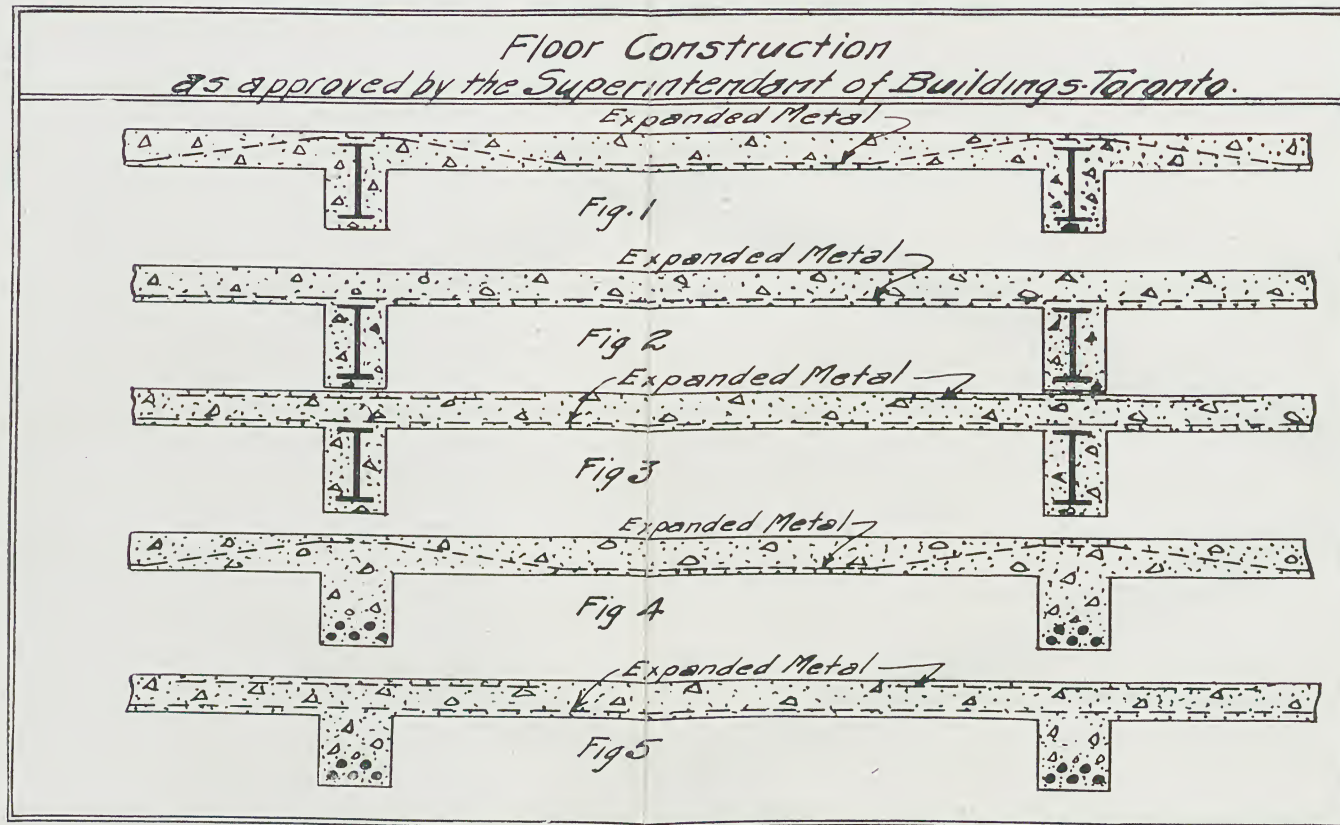 Floor Construction
as approved by the Superintendant of Buildings-Toronto.
Expanded Metal
Fig. 1
Expanded Metal
Fig 2
Expanded Metal
Fig 3
Expanded Metal
Fig 4
Expanded Metal
Fig 5